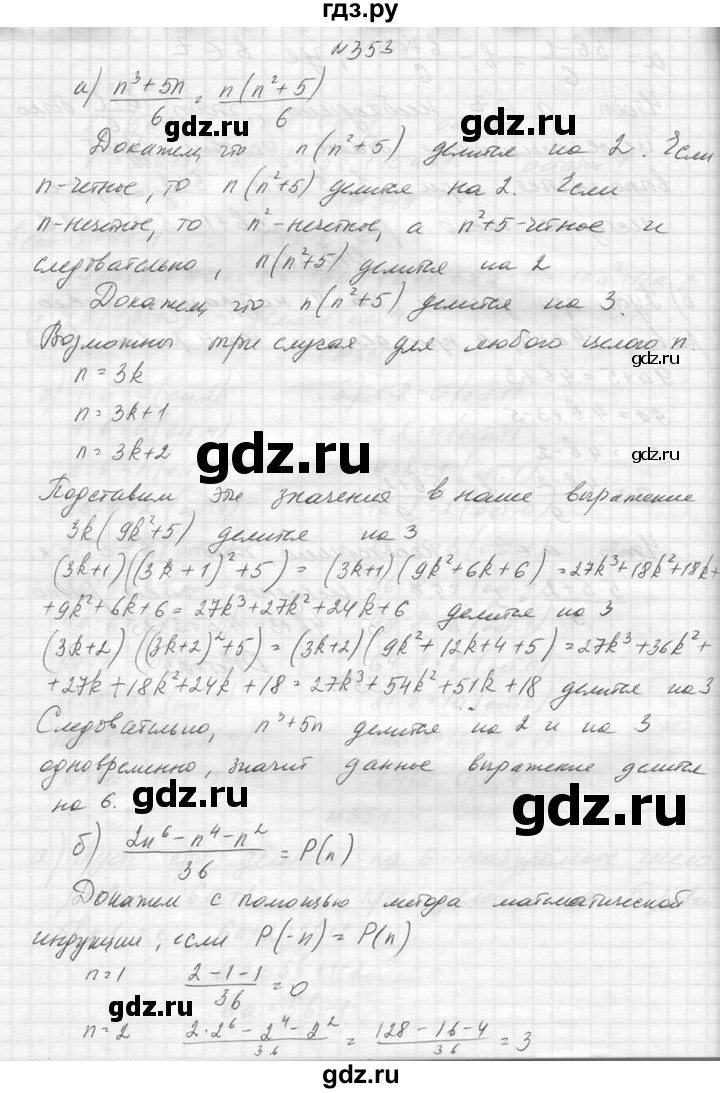 гдз.ру
№353
а) n³+5n/6 = n(n²+5)/6
gdz.ru gdz.ru
Докажем, что n(n²+5) делится на 2. Если
n-четное, то n(n²+5) делится на 2. Если
n-нечетное, то n²-нечетное, а n²+5-четное и
gdz.ru
следовательно, n(n²+5) делится на 2
Докажем, что n(n²+5) делится на 3.
Возможны три случая для любого целого n.
gdz.ru
n = 3k
n = 3k+1
n = 3k+2
gdz.ru gdz.ru
Подставим эти значения в наше выражение
3k(9k²+5) делится на 3
(3k+1)((3k+1)²+5) = (3k+1)(9k²+6k+6) = 27k³+18k²+18k+
+9k²+6k+6 = 27k³+27k²+24k+6 делится на 3
(3k+2)((3k+2)²+5) = (3k+2)(9k²+12k+4+5) = 27k³+36k²+
+27k+18k²+24k+18 = 27k³+54k²+51k+18 делится на 3
Следовательно, n³+5n делится на 2 и на 3
одновременно, значит данное выражение делится
на 6.
gdz.ru gdz.ru
б) 2n⁶-n⁴-n²/36 = P(n)
Докажем с помощью метода математической
индукции, если P(-n) = P(n)
n=1 2-1-1/36 = 0
gdz.ru gdz.ru
n=2 2·2⁶-2⁴-2²/36 = 128-16-4/36 = 3
gdz.ru